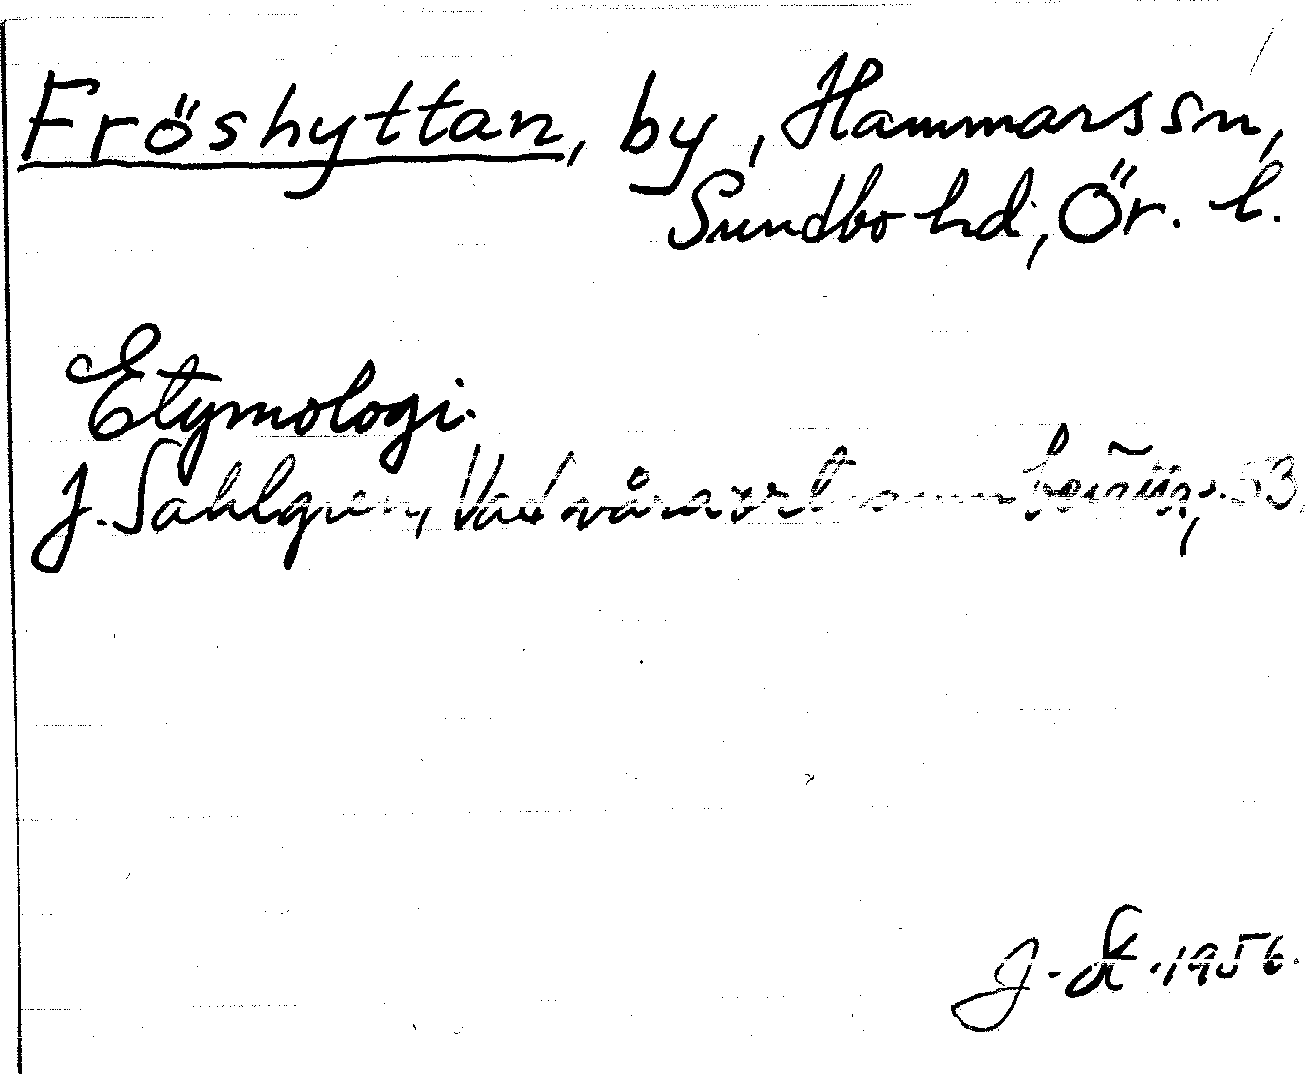 Fröshyttan, by, Hammars sn,
Sundbo hd, Ör. l.
Etymologi.
J. Sahlgren, Vad våra ortnamn berätta, s. 53.
1956.